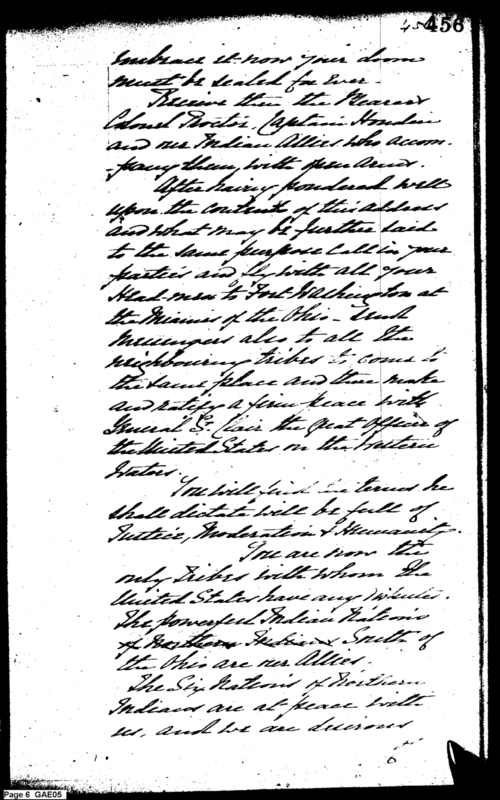 456
embrace it now your doom
must be sealed for ever -
Receive then the Bearers
Colonel Proctor, Captain Houdin
and our Indian Allies who accom-
-pany them, with open Arms.
After having pondered well
upon the contents of this Address
and what may be further said
to the same purpose call in your
parties and fly with all your
Head-men to Fort Washington at
the Miamis of the Ohio - Send
Messengers also to all the
neighbouring tribes to come to
the same place and there make
and ratify a firm peace with
General St. Clair the great Officer of
the United States on the Western
Waters.
You will find the terms he
shall dictate will be full of
Justice, Moderation & Humanity.
You are now the
only tribes with whom the
United States have any dispute.
The powerful Indian Nations
South of
the Ohio are our Allies.
The Six Nations of Northern
Indians are at peace with
us, and we are desirous
Page 6 GAE05